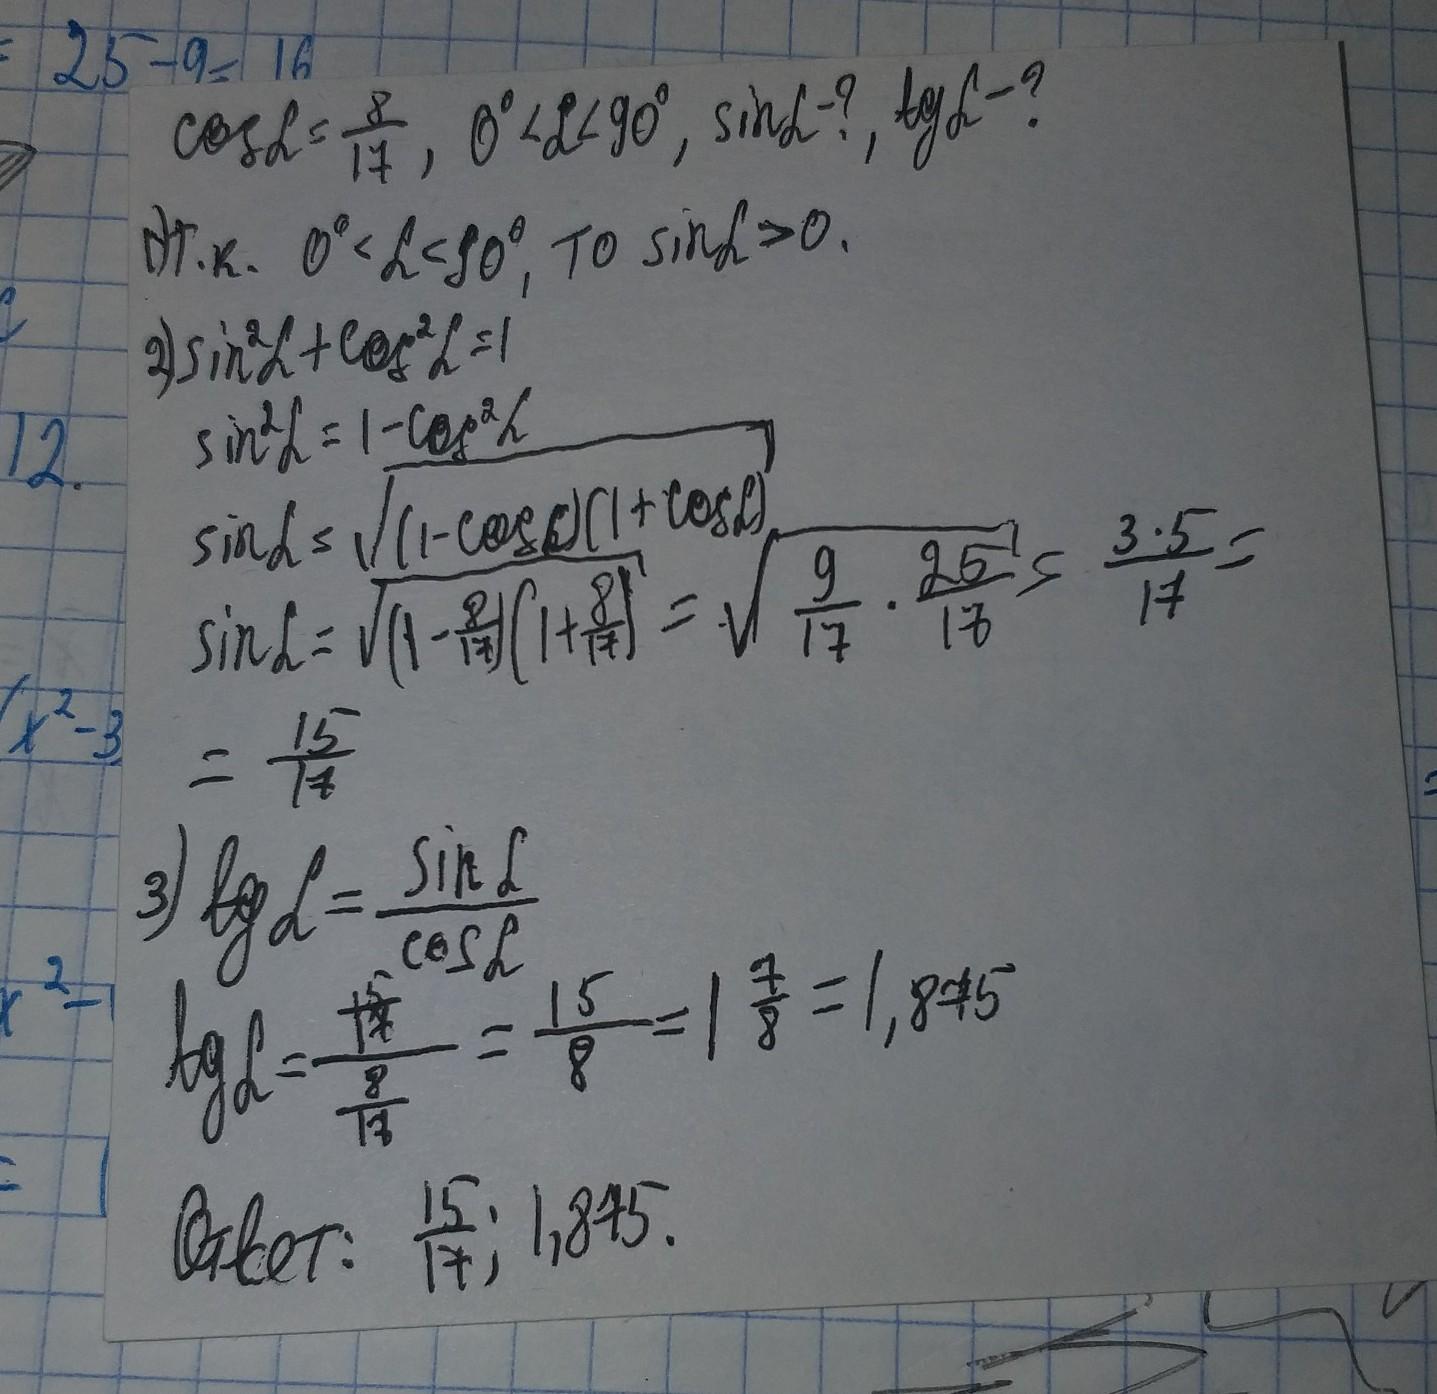 = 25-9= 16
cosα = 8/17, 0°<α<90°, sinα-?, tgα-?
1) т.к. 0°<α<90°, то sinα>0.
2) sin²α + cos²α = 1
sin²α = 1-cos²α
12.
sinα = √((1-cosα)(1+cosα))
sinα = √((1-8/17)(1+8/17)) = √(9/17 · 25/17) = 3·5/17 =
(x²-3
= 15/17
3) tgα = sinα/cosα
x²-
tgα = (15/17)/(8/17) = 15/8 = 1 7/8 = 1,875
Ответ: 15/17; 1,875.